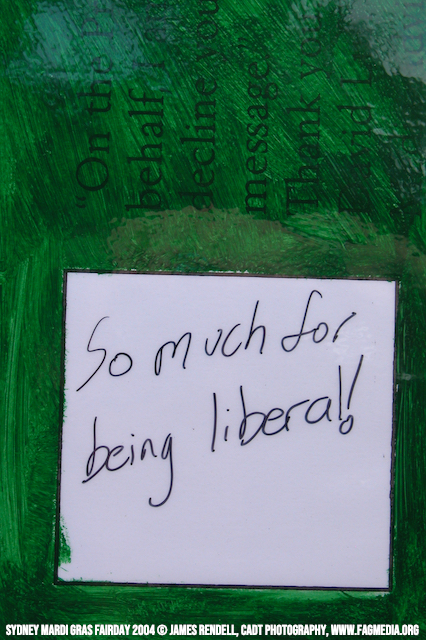 "On the
behalf, I
decline you
message?
Thank you
vid L
So much for
being liberal!
SYDNEY MARDI GRAS FAIRDAY 2004 © JAMES RENDELL, CADT PHOTOGRAPHY, WWW.FAGMEDIA.ORG